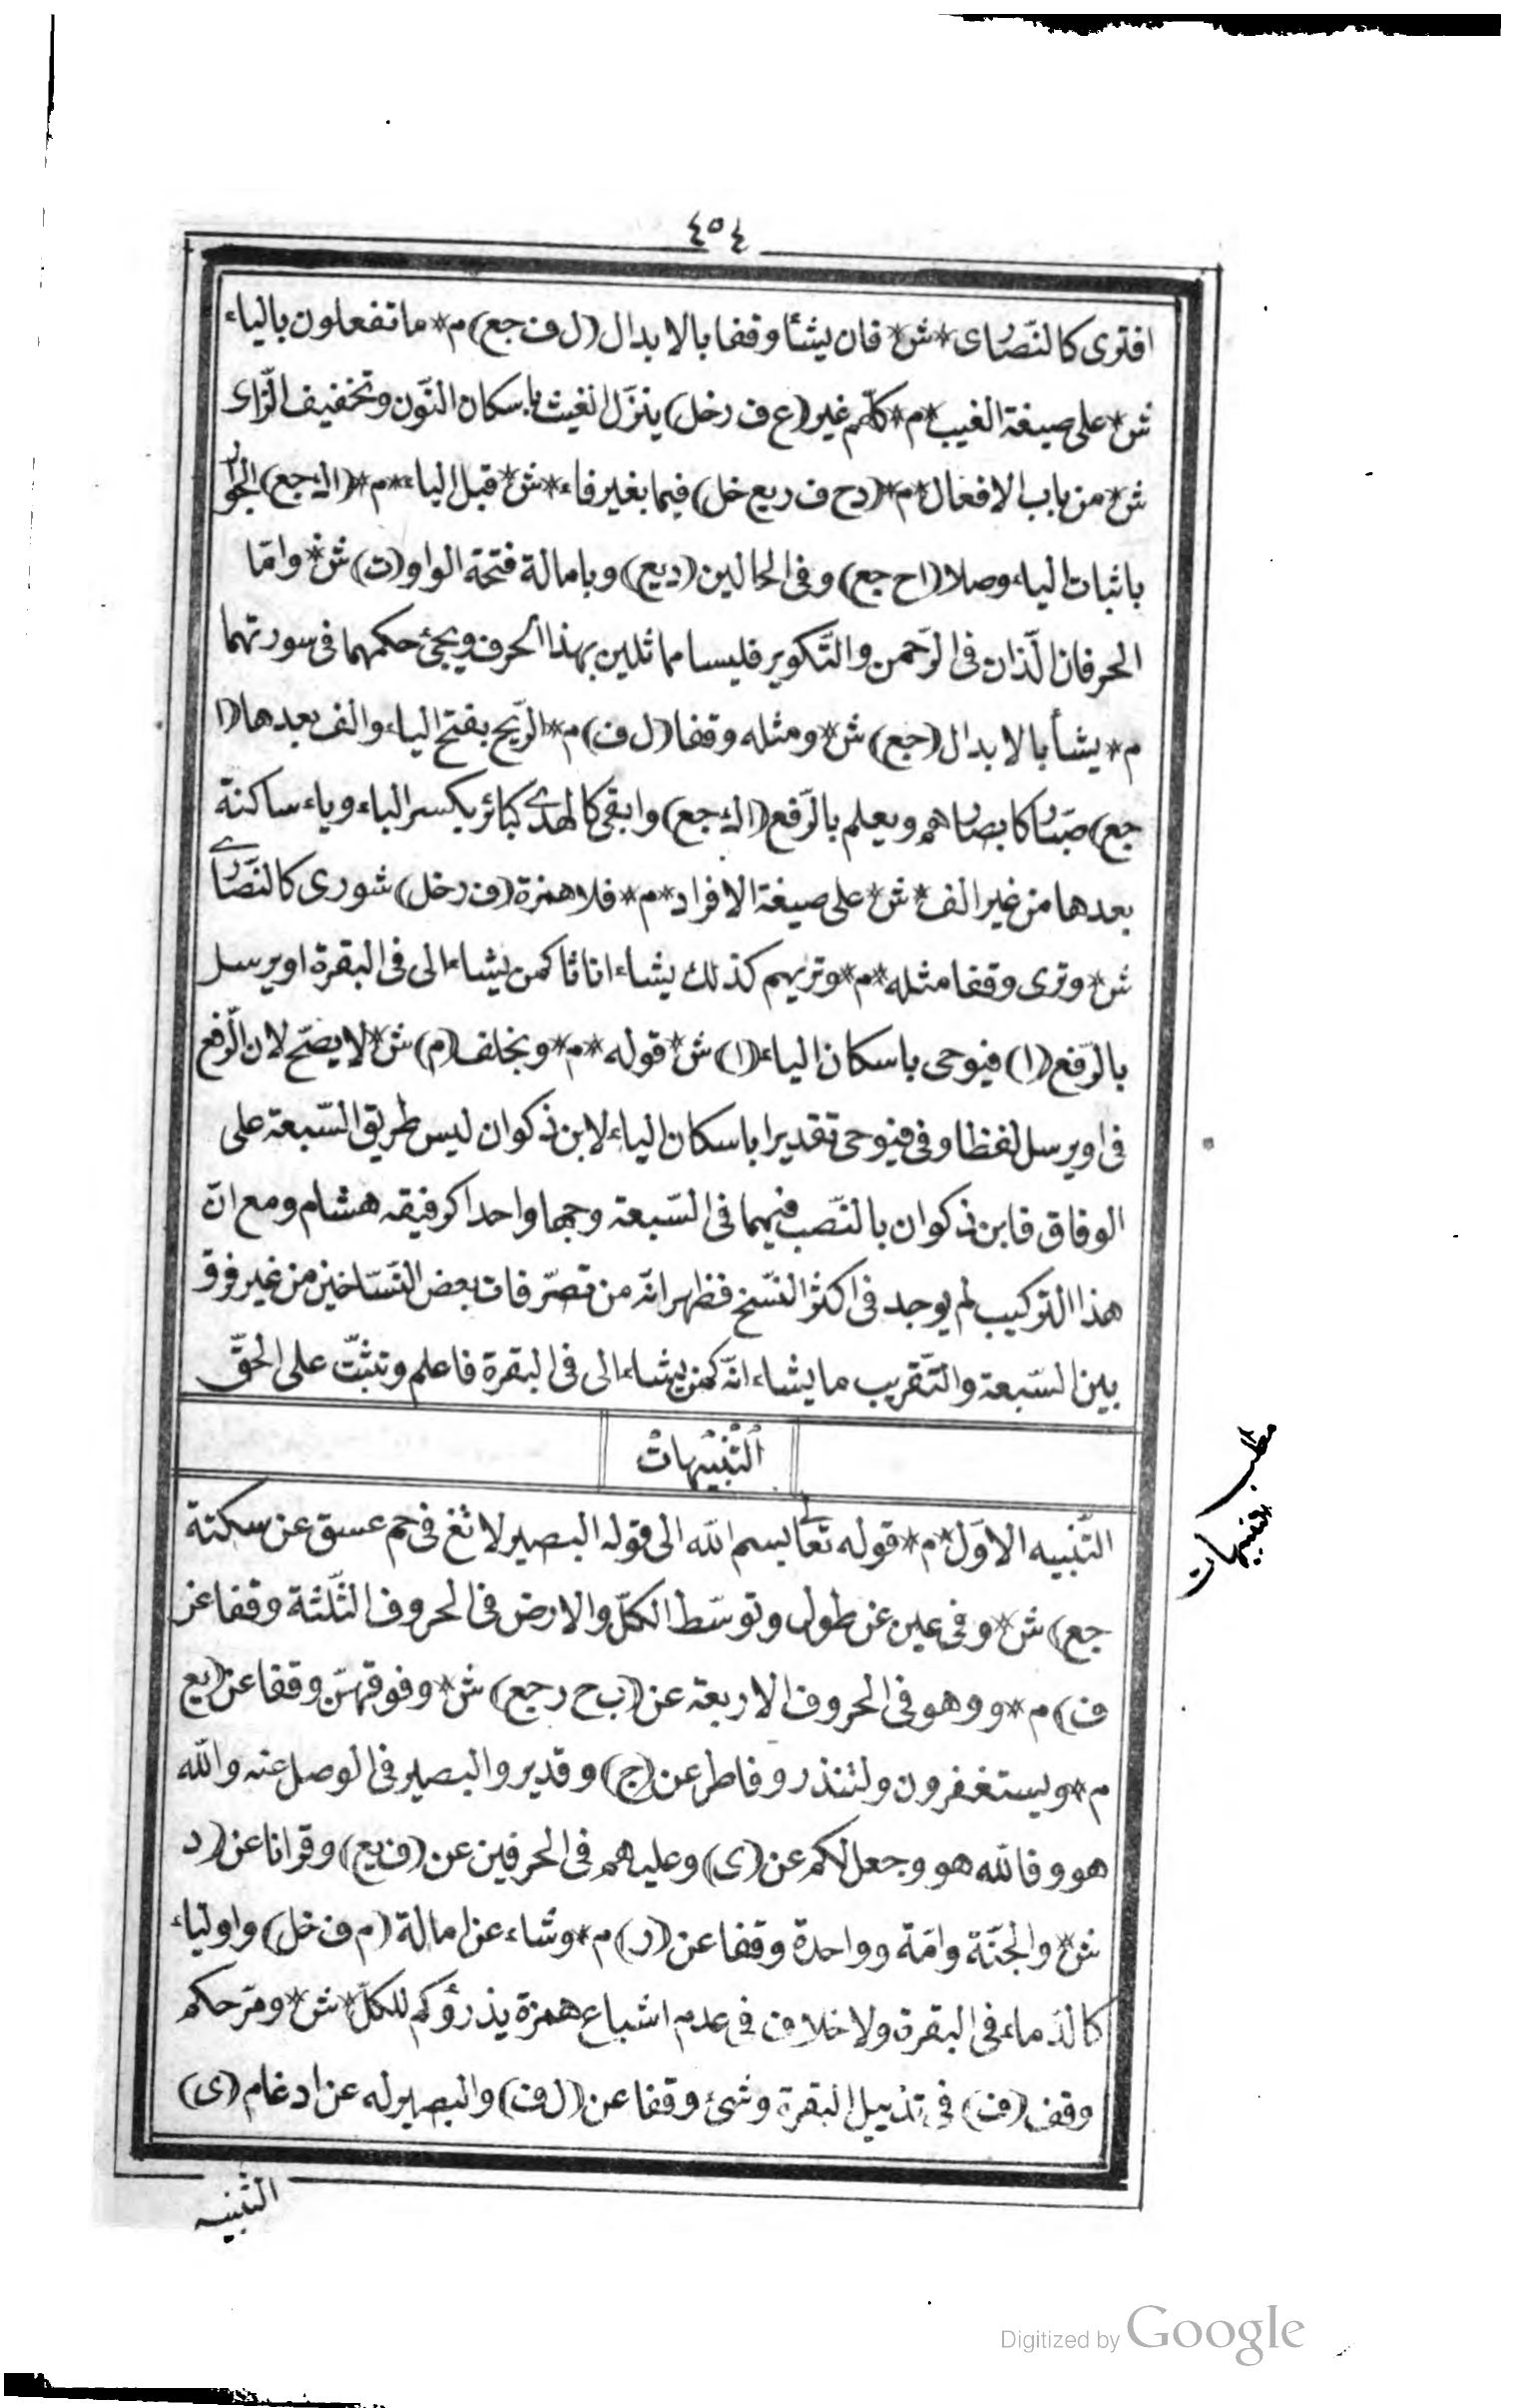 ٤٥٤
افترى كالنّصارى * ش * فان يشأ وقفا بالابدال (ل ف جع) م * ما تفعلون بالياء
ش * على صيغة الغيب * م * كلّهم غير (ع ف رخل) ينزّل الغيث باسكان النّون وتخفيف الزّاى
ش * من باب الافعال * م * (دح ف ربع خل) فيما بغير فاء * ش * قبل الباء * م * (اى جع) الجوار
باثبات الياء وصلا (اح جع) وفى الحالين (ديع) وبامالة فتحة الواو (ت) ش * وامّا
الحرفان الّذان فى الرّحمن والتّكوير فليسا مماثلين بهذا الحرف ويجئ حكمهما فى سورتهما
م * يشأ بالابدال (جع) ش * ومثله وقفا (ل ف) م * الرّيح بفتح الياء والف بعدها (ا
جع) صبّار كابصارهم ويعلم بالرّفع (اك جع) وابقى كالهدى كبائر بكسر الباء وياء ساكنة
بعدها من غير الف * ش * على صيغة الافراد * م * فلا همزة (ف رخل) شورى كالنّصارى
ش * وترى وقفا مثله * م * وتريهم كذلك يشاء اناثا كمن يشاء الى فى البقرة او يرسل
بالرّفع (ا) فيوحى باسكان الياء (ا) ش * قوله * م * وبخلف (م) ش * لا يصحّ لان الرّفع
فى او يرسل لفظا وفى فيوحى تقديرا باسكان الياء لابن ذكوان ليس طريق السّبعة على
الوفاق فابن ذكوان بالنّصب فيهما فى السّبعة وجها واحدا كرفيقه هشام ومع انّ
هذا التركيب لم يوجد فى اكثر النّسخ فظهر انّه من تصرّفات بعض النّسّاخين من غير فرق
بين السّبعة والتّقريب ما يشاء انّه كمن يشاء الى فى البقرة فاعلم وتثبّت على الحقّ
اَلتَّنْبِيهَاتُ
مطلب تنبيهات
التّنبيه الاوّل * م * قوله تعالى بسم الله الى قوله البصير لا تغ فى حم عسق عن سكتة
جع) ش * وفى عين عن طول وتوسّط الكلّ والارض فى الحروف الثّلثة وقفا عن
ف) م * و وهو فى الحروف الاربعة عن (ب ح رجع) ش * وفوقهنّ وقفا عن (يع
م * ويستغفرون ولتنذر وفاطر عن (ج) وقدير والبصير فى الوصل عنه والله
هو وفالله هو وجعل لكم عن (ى) وعليهم فى الحرفين عن (ف يع) وقرانا عن (د
ش * والجنّة وامّة وواحدة وقفا عن (ر) م * وشاء عن امالة (م ف خل) واولياء
كالدّماء فى البقرة ولا خلاف فى عدم اشباع همزة يذرؤكم للكلّ * ش * ومرّ حكم
وقف (ف) فى تذييل البقرة وشئ وقفا عن (ل ف) والبصير له عن ادغام (ى)
التنبيه
Digitized by Google